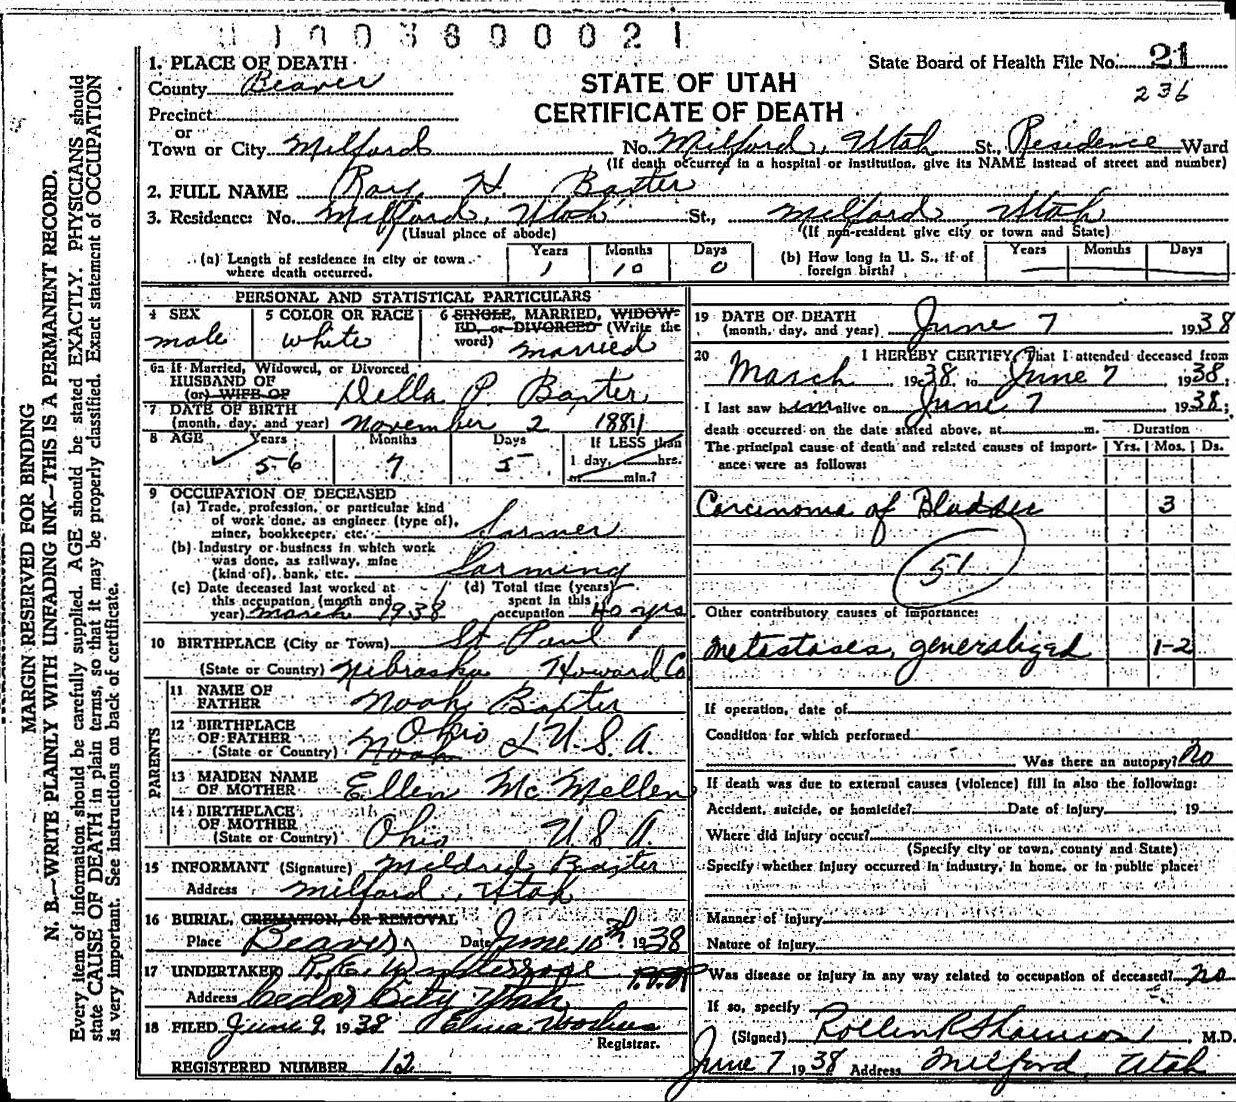 0 1 0 0 3 8 0 0 0 2 1
1. PLACE OF DEATH
County Beaver
Precinct
or
Town or City Milford
STATE OF UTAH
CERTIFICATE OF DEATH
State Board of Health File No. 21
236
No. Milford, Utah St., Residence Ward
(If death occurred in a hospital or institution, give its NAME instead of street and number)
2. FULL NAME Ray H. Baxter
3. Residence: No. Milford, Utah St., Milford, Utah
(Usual place of abode) (If non-resident give city or town and State)
(a) Length of residence in city or town where death occurred. Years 1 Months 10 Days 0
(b) How long in U. S., if of foreign birth? Years Months Days
PERSONAL AND STATISTICAL PARTICULARS
4 SEX male
5 COLOR OR RACE white
6 SINGLE, MARRIED, WIDOWED, or DIVORCED (Write the word) married
6a If Married, Widowed, or Divorced
HUSBAND OF
(or) WIFE OF Della P. Baxter
7 DATE OF BIRTH
(month, day, and year) November 2 1881
8 AGE Years 56 Months 7 Days 5 If LESS than 1 day, hrs. or min.?
9 OCCUPATION OF DECEASED
(a) Trade, profession, or particular kind
of work done, as engineer (type of),
miner, bookkeeper, etc. Farmer
(b) Industry or business in which work
was done, as railway, mine
(kind of), bank, etc. Farming
(c) Date deceased last worked at
this occupation (month and
year) March 1938
(d) Total time (years)
spent in this
occupation 40 yrs
10 BIRTHPLACE (City or Town) St Paul
(State or Country) Nebraska Howard Co
PARENTS
11 NAME OF
FATHER Noah Baxter
12 BIRTHPLACE
OF FATHER
(State or Country) Noah Ohio U.S.A.
13 MAIDEN NAME
OF MOTHER Ellen McMellen
14 BIRTHPLACE
OF MOTHER
(State or Country) Ohio U.S.A.
15 INFORMANT (Signature) Mildred Baxter
Address Milford, Utah
16 BURIAL, CREMATION, OR REMOVAL
Place Beaver, Date June 10th 1938
17 UNDERTAKER R. E.
Address Cedar City, Utah
18 FILED June 9, 1938
Registrar.
REGISTERED NUMBER 12
19 DATE OF DEATH
(month, day, and year) June 7 1938
20 I HEREBY CERTIFY, That I attended deceased from
March 1938, to June 7 1938,
I last saw him alive on June 7 1938;
death occurred on the date stated above, at m. Duration
The principal cause of death and related causes of importance were as follows: Yrs. Mos. Ds.
Carcinoma of Bladder 3
51
Other contributory causes of importance:
Metastases, generalized 1-2
If operation, date of
Condition for which performed
Was there an autopsy? No
If death was due to external causes (violence) fill in also the following:
Accident, suicide, or homicide? Date of injury , 19
Where did injury occur?
(Specify city or town, county and State)
Specify whether injury occurred in industry, in home, or in public place:
Manner of injury
Nature of injury
Was disease or injury in any way related to occupation of deceased? no
If so, specify
(Signed) , M.D.
June 7 1938 Address Milford, Utah
MARGIN RESERVED FOR BINDING
N. B.—WRITE PLAINLY WITH UNFADING INK—THIS IS A PERMANENT RECORD.
Every item of information should be carefully supplied. AGE should be stated EXACTLY. PHYSICIANS should
state CAUSE OF DEATH in plain terms, so that it may be properly classified. Exact statement of OCCUPATION
is very important. See instructions on back of certificate.